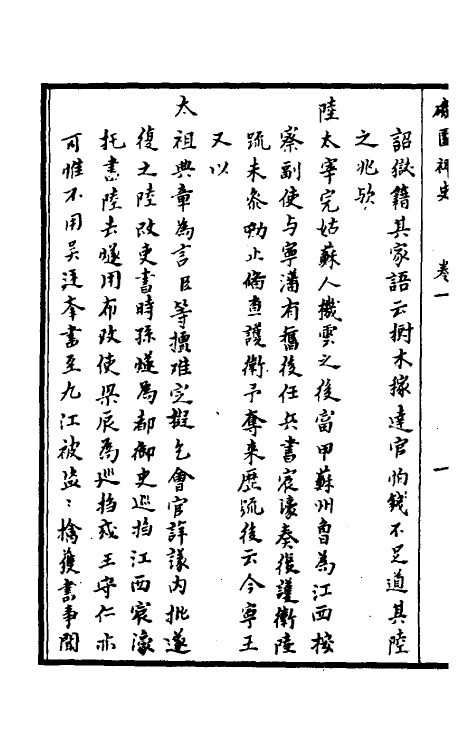 詔獄籍其家語云樹木稼達官怕錢不足道其陸
之兆歟
陸太宰完姑蘇人機雲之後富甲蘇州曾為江西按
察副使与寧藩有舊後任兵書宸濠奏復護衛陸
疏未参劾止備查護衛予奪来歷疏後云今寧王
又以
太祖典章為言臣等擅难定擬乞會官詳議内批遂
復之陸改吏書時孫燧為都御史巡撫江西宸濠
托書陸去燧用布政使梁辰為巡撫或王守仁亦
可惟不用吴廷奉書至九江被盗：擒獲書事聞
卷一
一